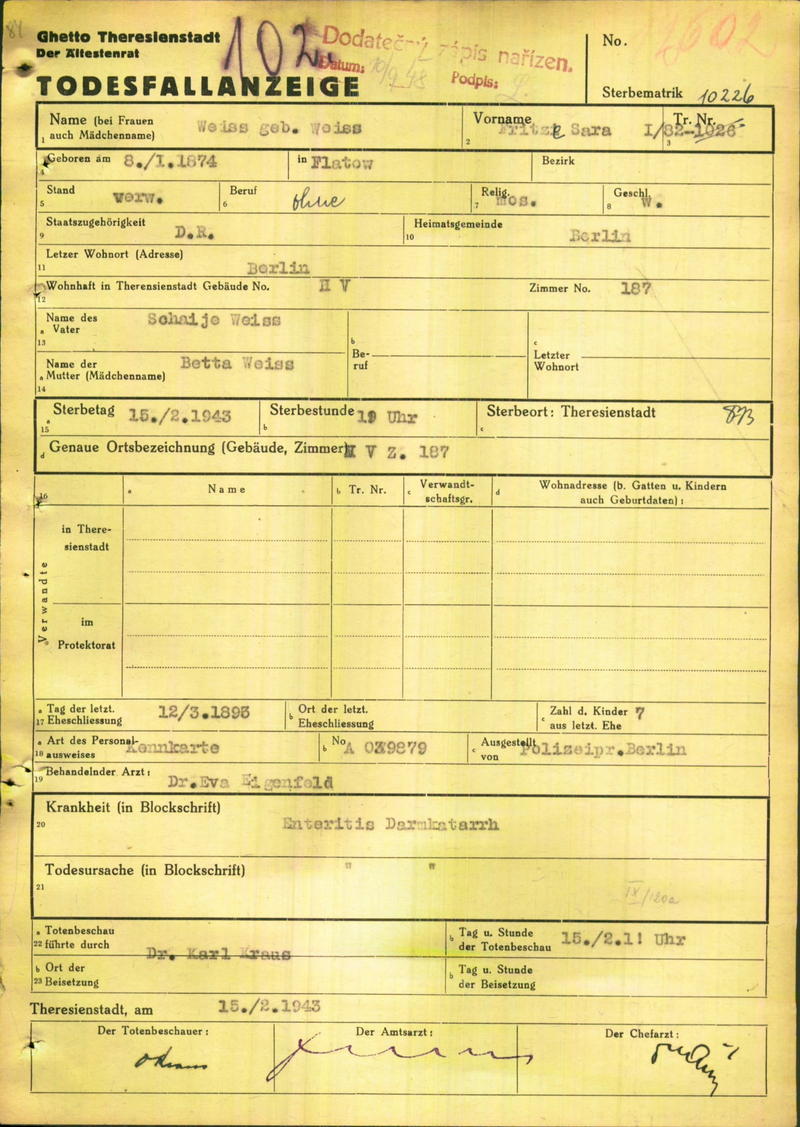 Ghetto Theresienstadt
Der Ältestenrat
102
Dodateč zápis nařízen.
Datum:
Podpis:
TODESFALLANZEIGE
No.
Sterbematrik 10226
Name (bei Frauen auch Mädchenname) Weiss geb. Weiss
1
Vorname Sara
2
Tr. Nr. I/82-1026
3
Geboren am 8./I.1874
4
in Flatow
Bezirk
Stand verw.
5
Beruf ohne
6
Relig. Mos.
7
Geschl. W.
8
Staatszugehörigkeit D.R.
9
Heimatsgemeinde Berlin
10
Letzer Wohnort (Adresse)
11 Berlin
Wohnhaft in Theresienstadt Gebäude No. H V
12
Zimmer No. 187
Name des Schaije Weiss
a Vater
13
b
Be-
ruf
c
Letzter
Wohnort
Name der Betta Weiss
a Mutter (Mädchenname)
14
a Sterbetag 15./2.1943
15
Sterbestunde Uhr
b
Sterbeort: Theresienstadt
c
d Genaue Ortsbezeichnung (Gebäude, Zimmer) V Z. 187
16
a Name
b Tr. Nr.
c Verwandt-
schaftsgr.
d Wohnadresse (b. Gatten u. Kindern
auch Geburtdaten):
Verwandte
in There-
sienstadt
im
Protektorat
a Tag der letzt. 12/3.1893
17 Eheschliessung
b Ort der letzt.
Eheschliessung
c Zahl d. Kinder 7
aus letzt. Ehe
a Art des Personal- Kennkarte
18 ausweises
b No A 039879
c Ausgestellt von Polizeipr.Berlin
Behandelnder Arzt:
19 Dr.Eva Eigenfeld
Krankheit (in Blockschrift)
20 Enteritis Darmkatarrh
Todesursache (in Blockschrift) " "
21
IX/120a
a Totenbeschau
22 führte durch Dr. Karl Kraus
b Tag u. Stunde 15./2.1! Uhr
der Totenbeschau
b Ort der
23 Beisetzung
b Tag u. Stunde
der Beisetzung
Theresienstadt, am 15./2.1943
Der Totenbeschauer:
Der Amtsarzt:
Der Chefarzt: